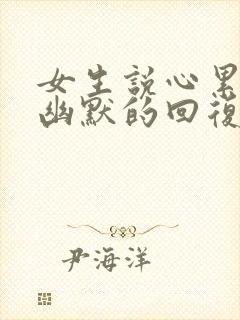 女生説心累
幽默的回復
尹海洋